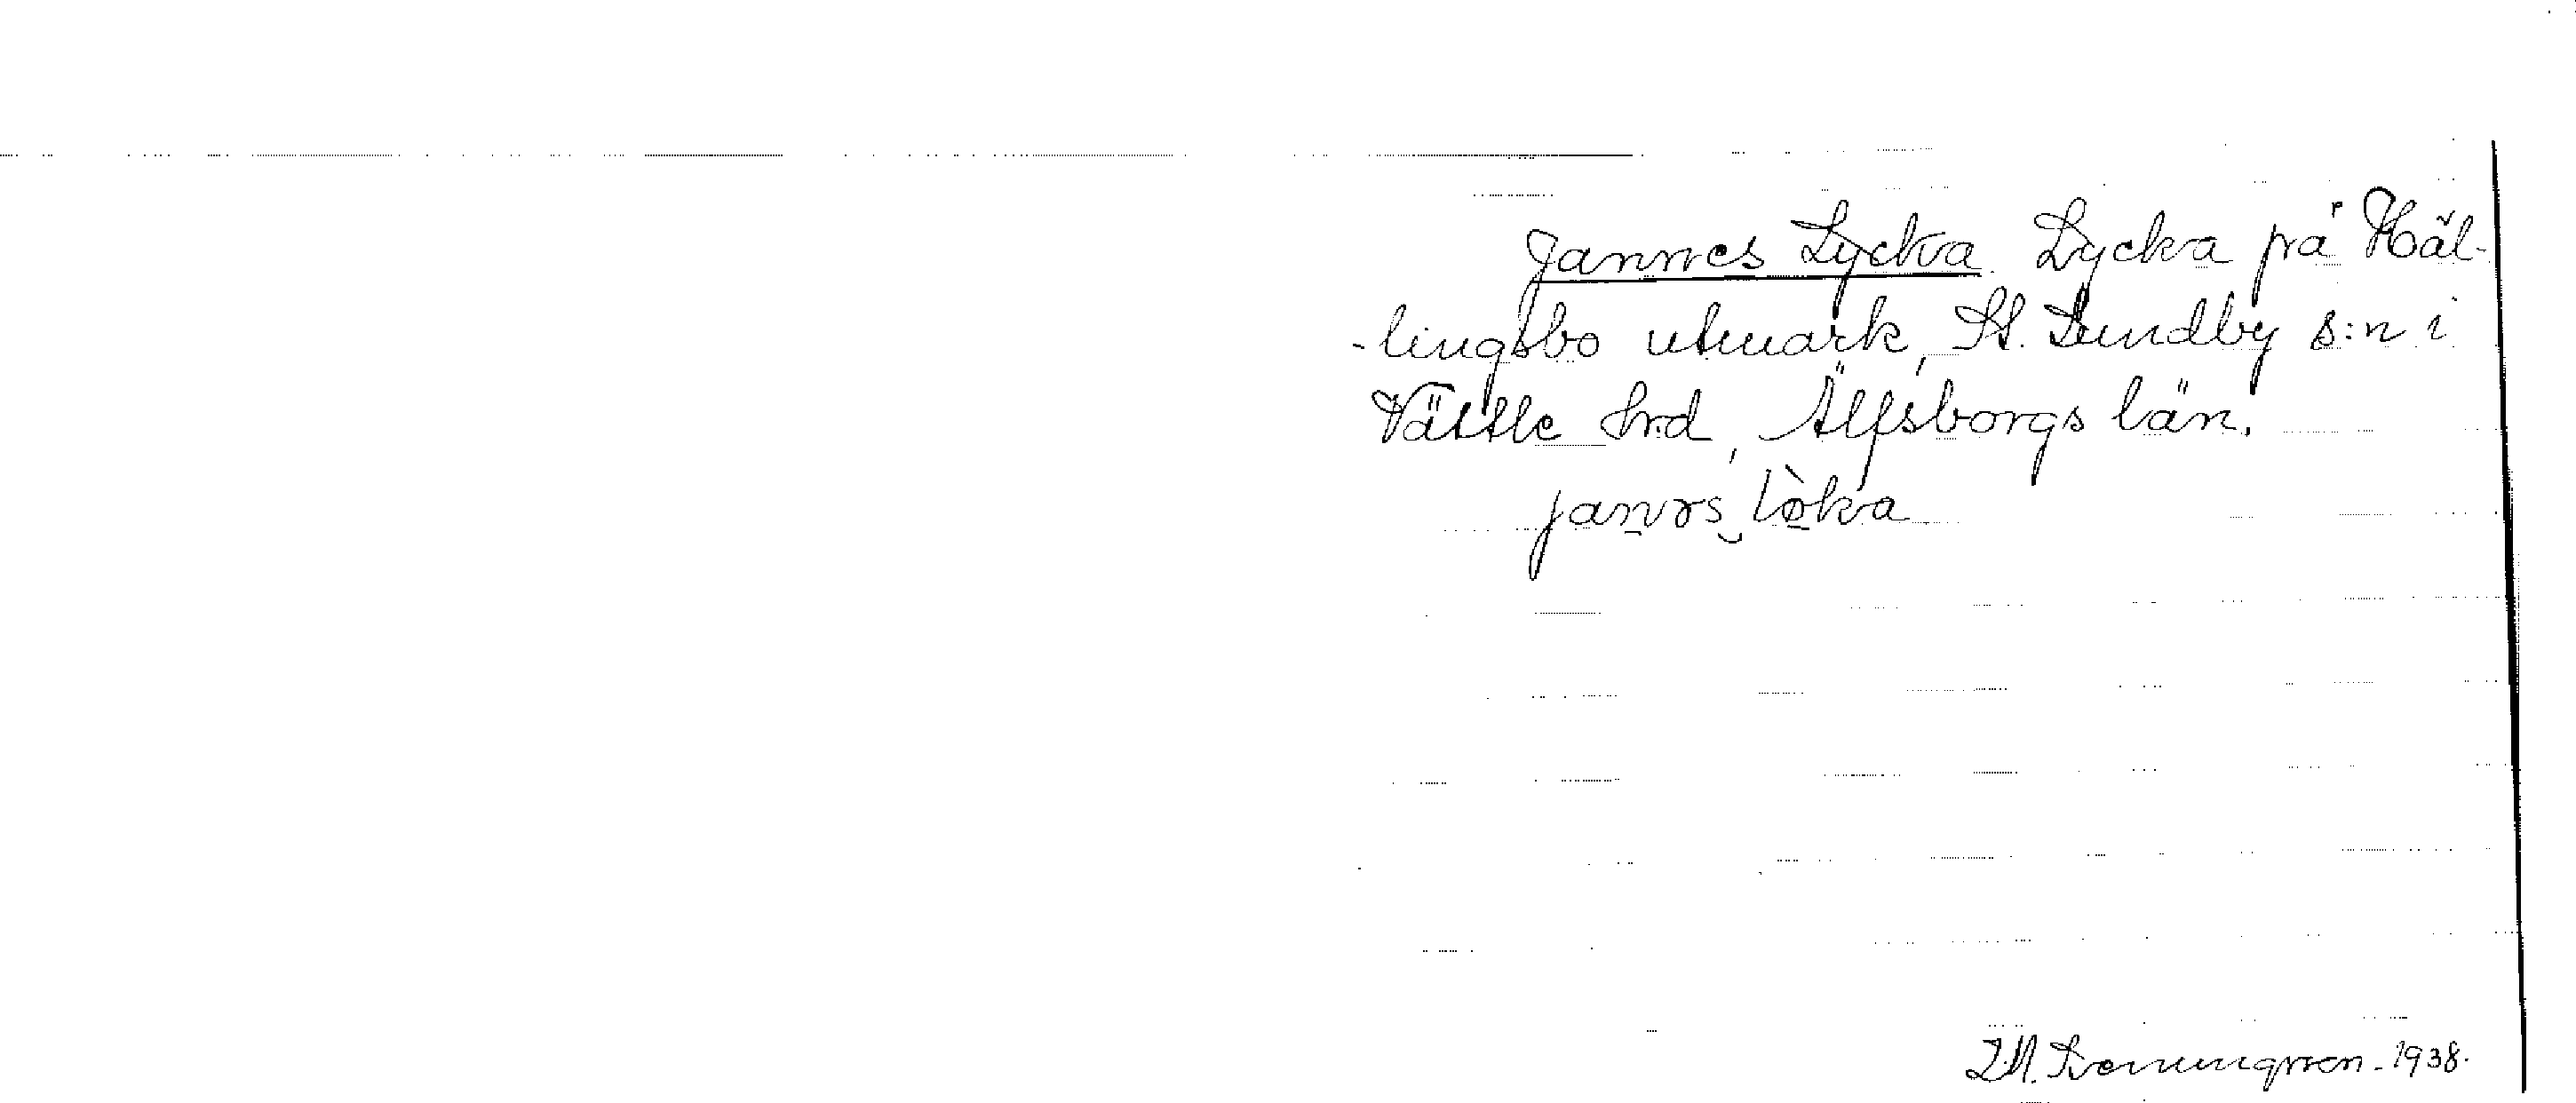 Jannes Lycka. Lycka på Häl-
-lingsbo utmark, St. Lundby s:n i
Vättle hrd, Älfsborgs län.
janəs lø̀ka
1938.